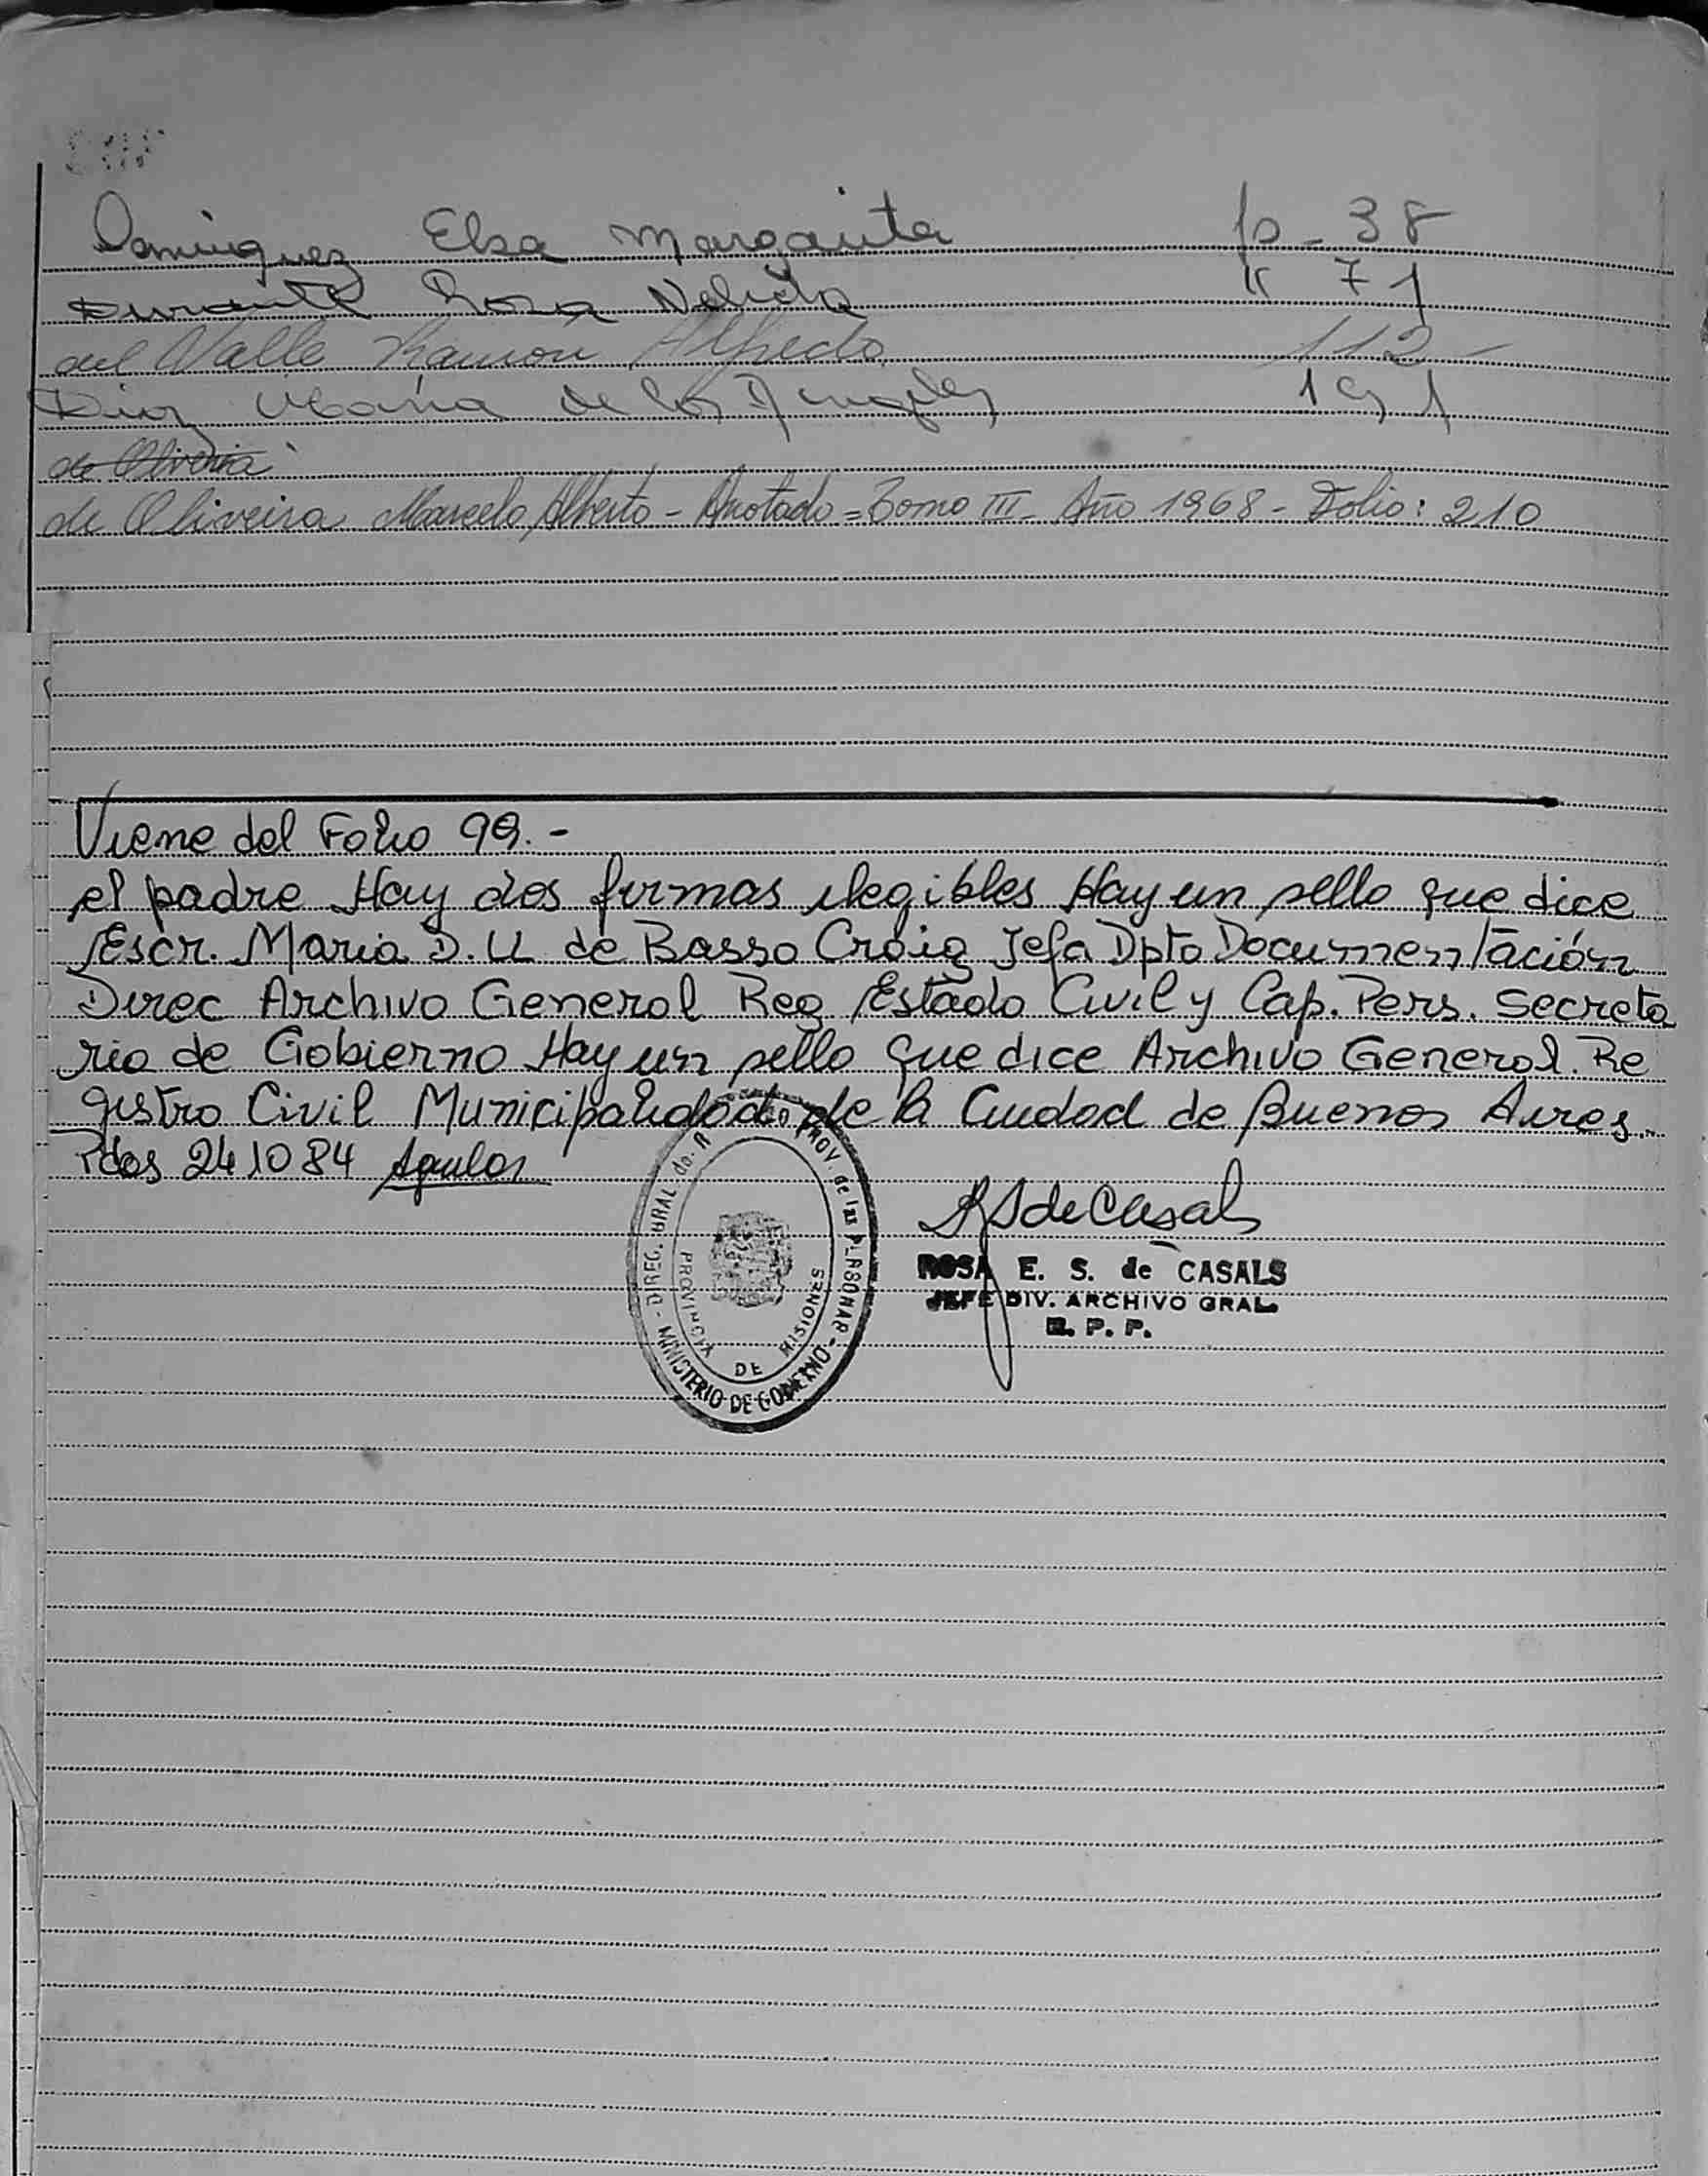 Dominguez Elsa Margarita fo - 38
Durante Rosa Nelida " 71
del Valle Ramón Alfredo 112 -
Diaz Maria de los Angeles 191
de Oliveira
de Oliveira Marcelo Alberto - Anotado = Tomo III - Año 1968 - Folio: 210
Viene del Folio 99.-
el padre Hay dos firmas ilegibles Hay un sello que dice
Escr. Maria D. U de Basso Craig Jefa Dpto Documentación
Direc Archivo General Reg Estado Civil y Cap. Pers. Secreta
rio de Gobierno Hay un sello que dice Archivo General. Re
gistro Civil Municipalidad de la Ciudad de Buenos Aires.
Pdas 24 10 84 Aguilar
RSdeCasals
ROSA E. S. de CASALS
JEFE DIV. ARCHIVO GRAL.
R. P. P.
DIREC. GRAL. do. R PROV. de las PERSONAS
- MINISTERIO DE GOBIERNO -
PROVINCIA DE MISIONES